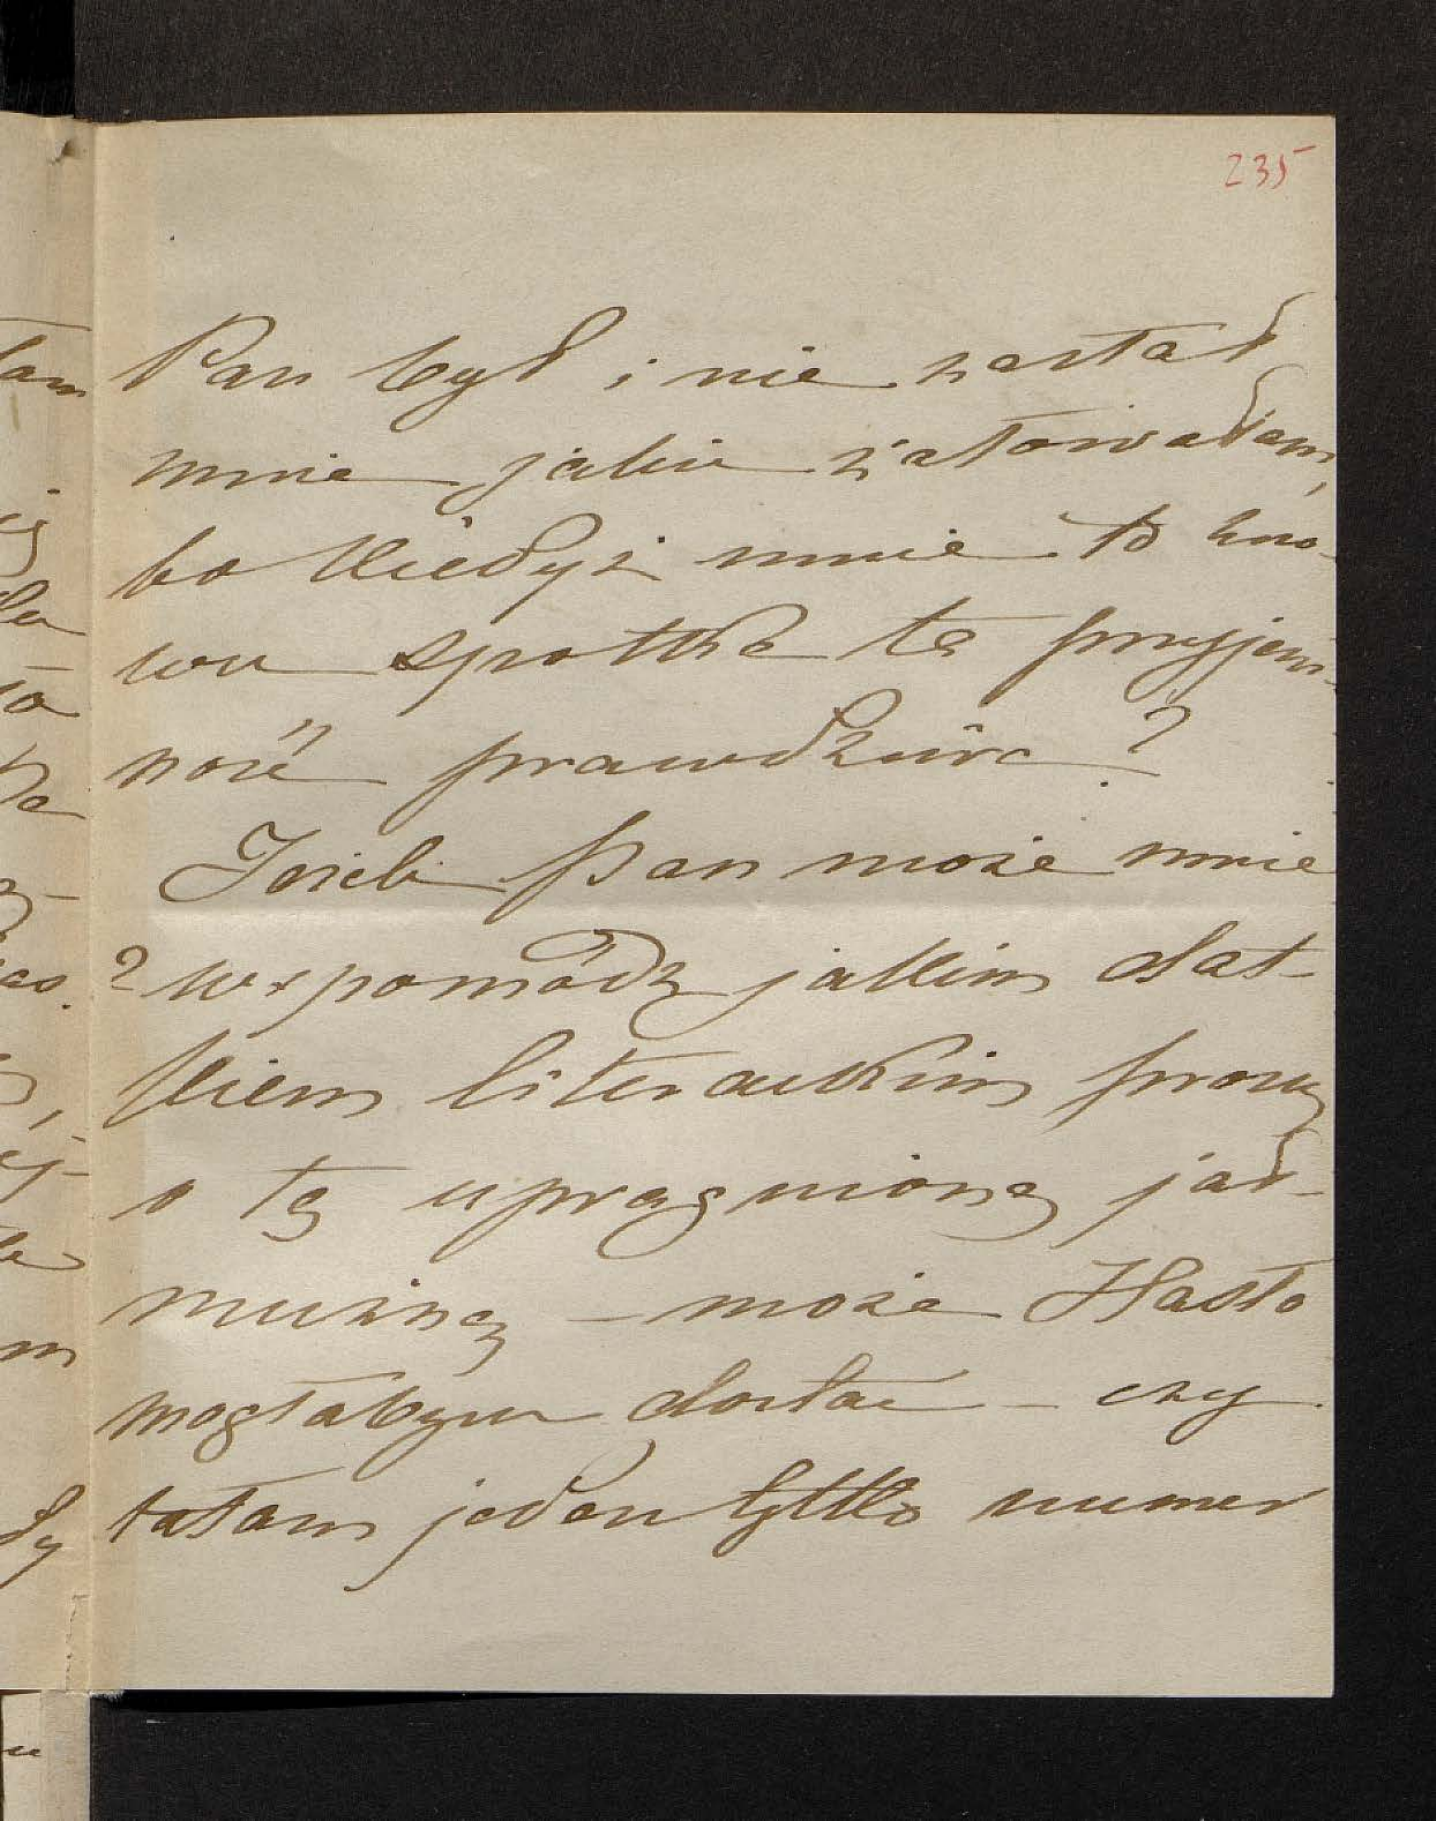 235
Pan był i nie zastał
mnie jakże żałowałam,
bo kiedyż mnie to zno-
wu spotka ta przyjem-
ność prawdziwa?
Jeżeli Pan może mnie
? wspomódz jakim dat-
kiem literackim proszę
o tę upragnioną jał-
mużnę – może Hasło
mogłabym dostać – czy
tałam jeden tylko numer